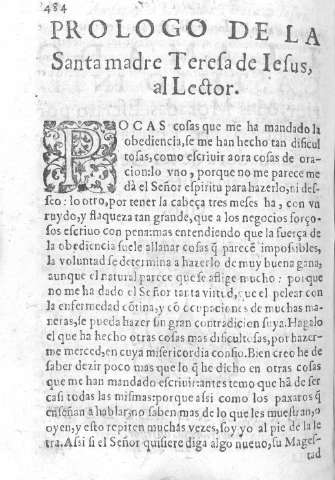 484
PROLOGO DE LA
Santa madre Teresa de Iesus,
al Lector.
POCAS cosas que me ha mandado la
obediencia, se me han hecho tan dificul
tosas, como escriuir aora cosas de ora
cion: lo vno, porque no me parece me
dà el Señor espiritu para hazerlo, ni des-
seo: lo otro, por tener la cabeça tres meses ha, con vn
ruydo, y flaqueza tan grande, que a los negocios forço-
sos escriuo con pena: mas entendiendo que la fuerça de
la obediencia suele allanar cosas q̃ parecẽ impossibles,
la voluntad se determina a hazerlo de muy buena gana,
aunque el natural parece que se aflige mucho: porque
no me ha dado el Señor tanta virtud, que el pelear con
la enfermedad cõtina, y cõ ocupaciones de muchas ma-
neras, se pueda hazer sin gran contradicion suya. Hagalo
el que ha hecho otras cosas mas dificultosas, por hazer-
me merced, en cuya misericordia confio. Bien creo he de
saber dezir poco mas que lo q̃ he dicho en otras cosas
que me han mandado escriuir: antes temo que hã de ser
casi todas las mismas: porque assi como los paxaros q̃
enseñan a hablar, no saben mas de lo que les muestran, o
oyen, y esto repiten muchas vezes, soy yo al pie de la le
tra. Assi si el Señor quisiere diga algo nueuo, su Mages-
tad